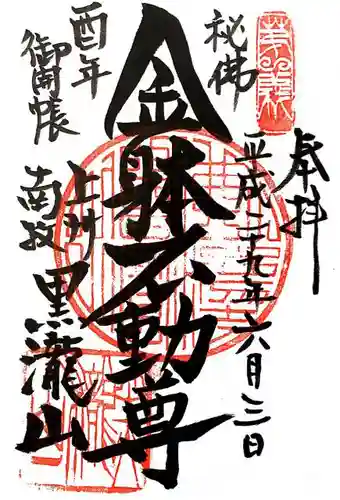 奉拝
平成二十九年六月三日
秘佛
金躰不動尊
酉年
御開帳
上州
南牧
黒瀧山